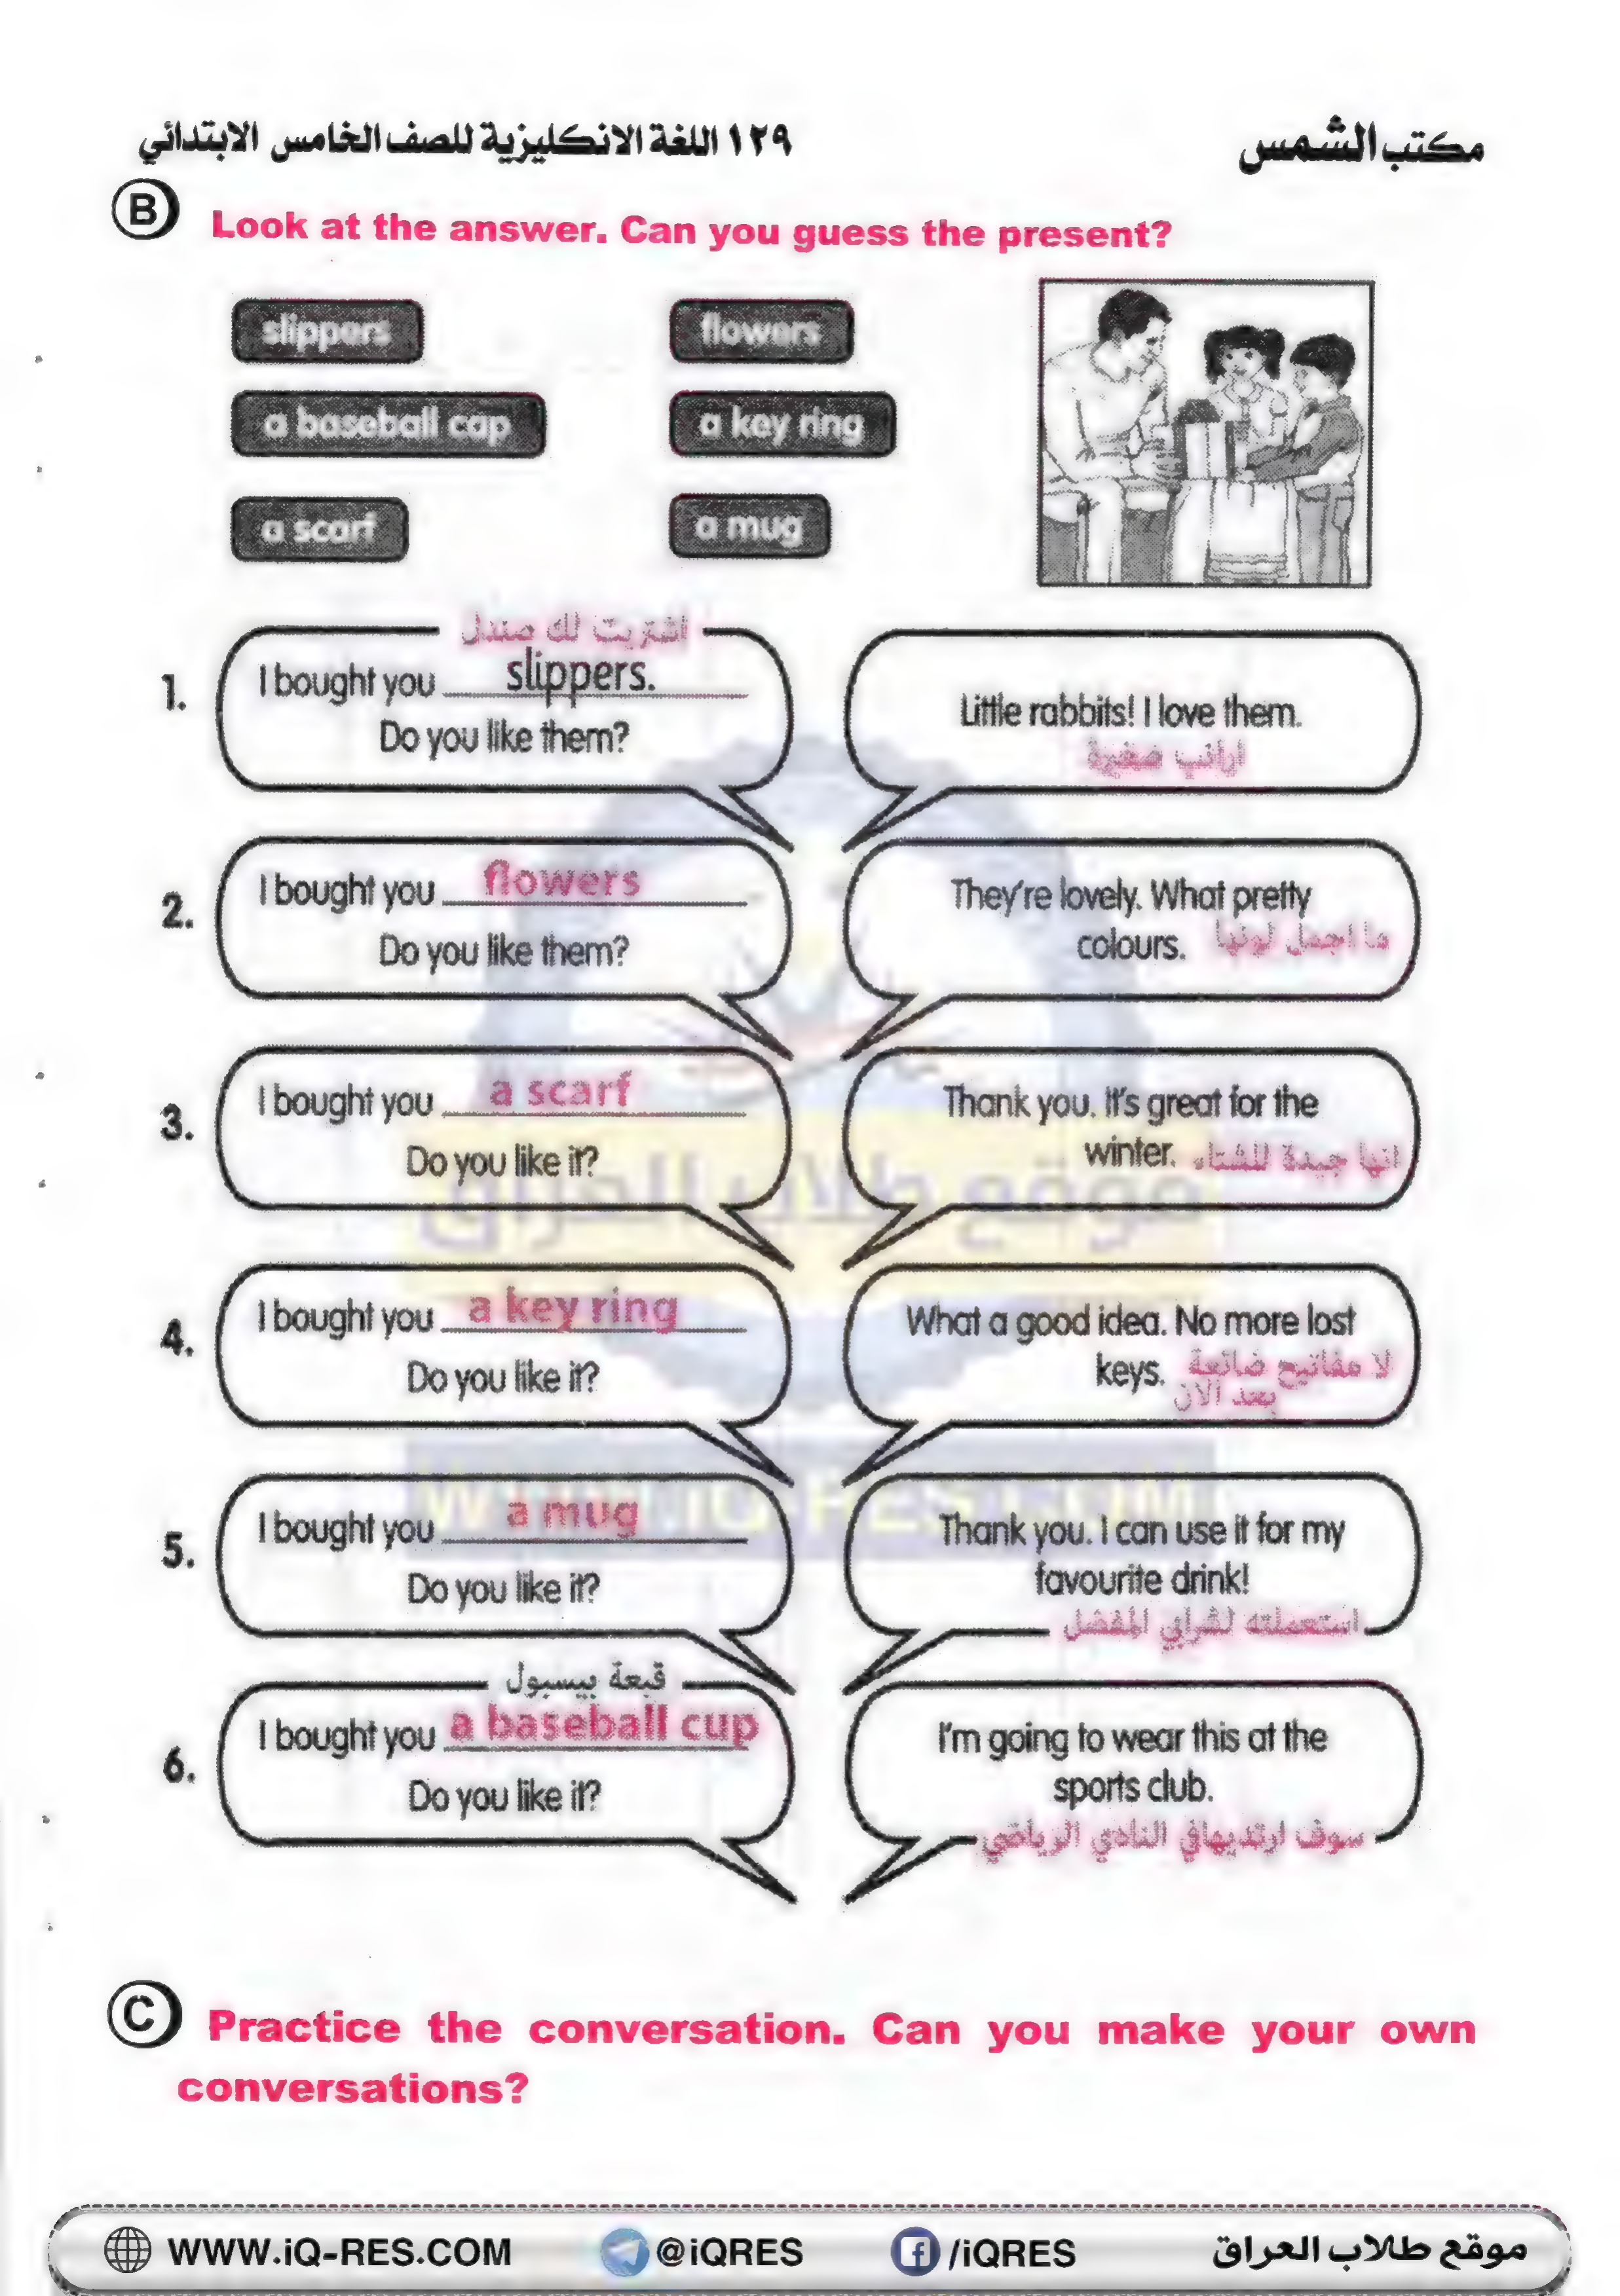 مكتب الشمس
١٢٩ اللغة الانكليزية للصف الخامس الابتدائي
B Look at the answer. Can you guess the present?
slippers
flowers
a baseball cap
a key ring
a scarf
a mug
1.
اشتريت لك صندل
I bought you slippers.
Do you like them?
Little rabbits! I love them.
ارانب صغيرة
2.
I bought you flowers
Do you like them?
They're lovely. What pretty
colours. ما اجمل لونها
3.
I bought you a scarf
Do you like it?
Thank you. It's great for the
winter. انها جيدة للشتاء
4.
I bought you a key ring
Do you like it?
What a good idea. No more lost
keys. لا مفاتيح ضائعة
بعد الان
5.
I bought you a mug
Do you like it?
Thank you. I can use it for my
favourite drink!
استعملته لشرابي المفضل
6.
قبعة بيسبول
I bought you a baseball cup
Do you like it?
I'm going to wear this at the
sports club.
سوف ارتديهافي النادي الرياضي
موقع طلاب العراق
WWW.iQ-RES.COM
C Practice the conversation. Can you make your own
conversations?
WWW.iQ-RES.COM @iQRES /iQRES موقع طلاب العراق